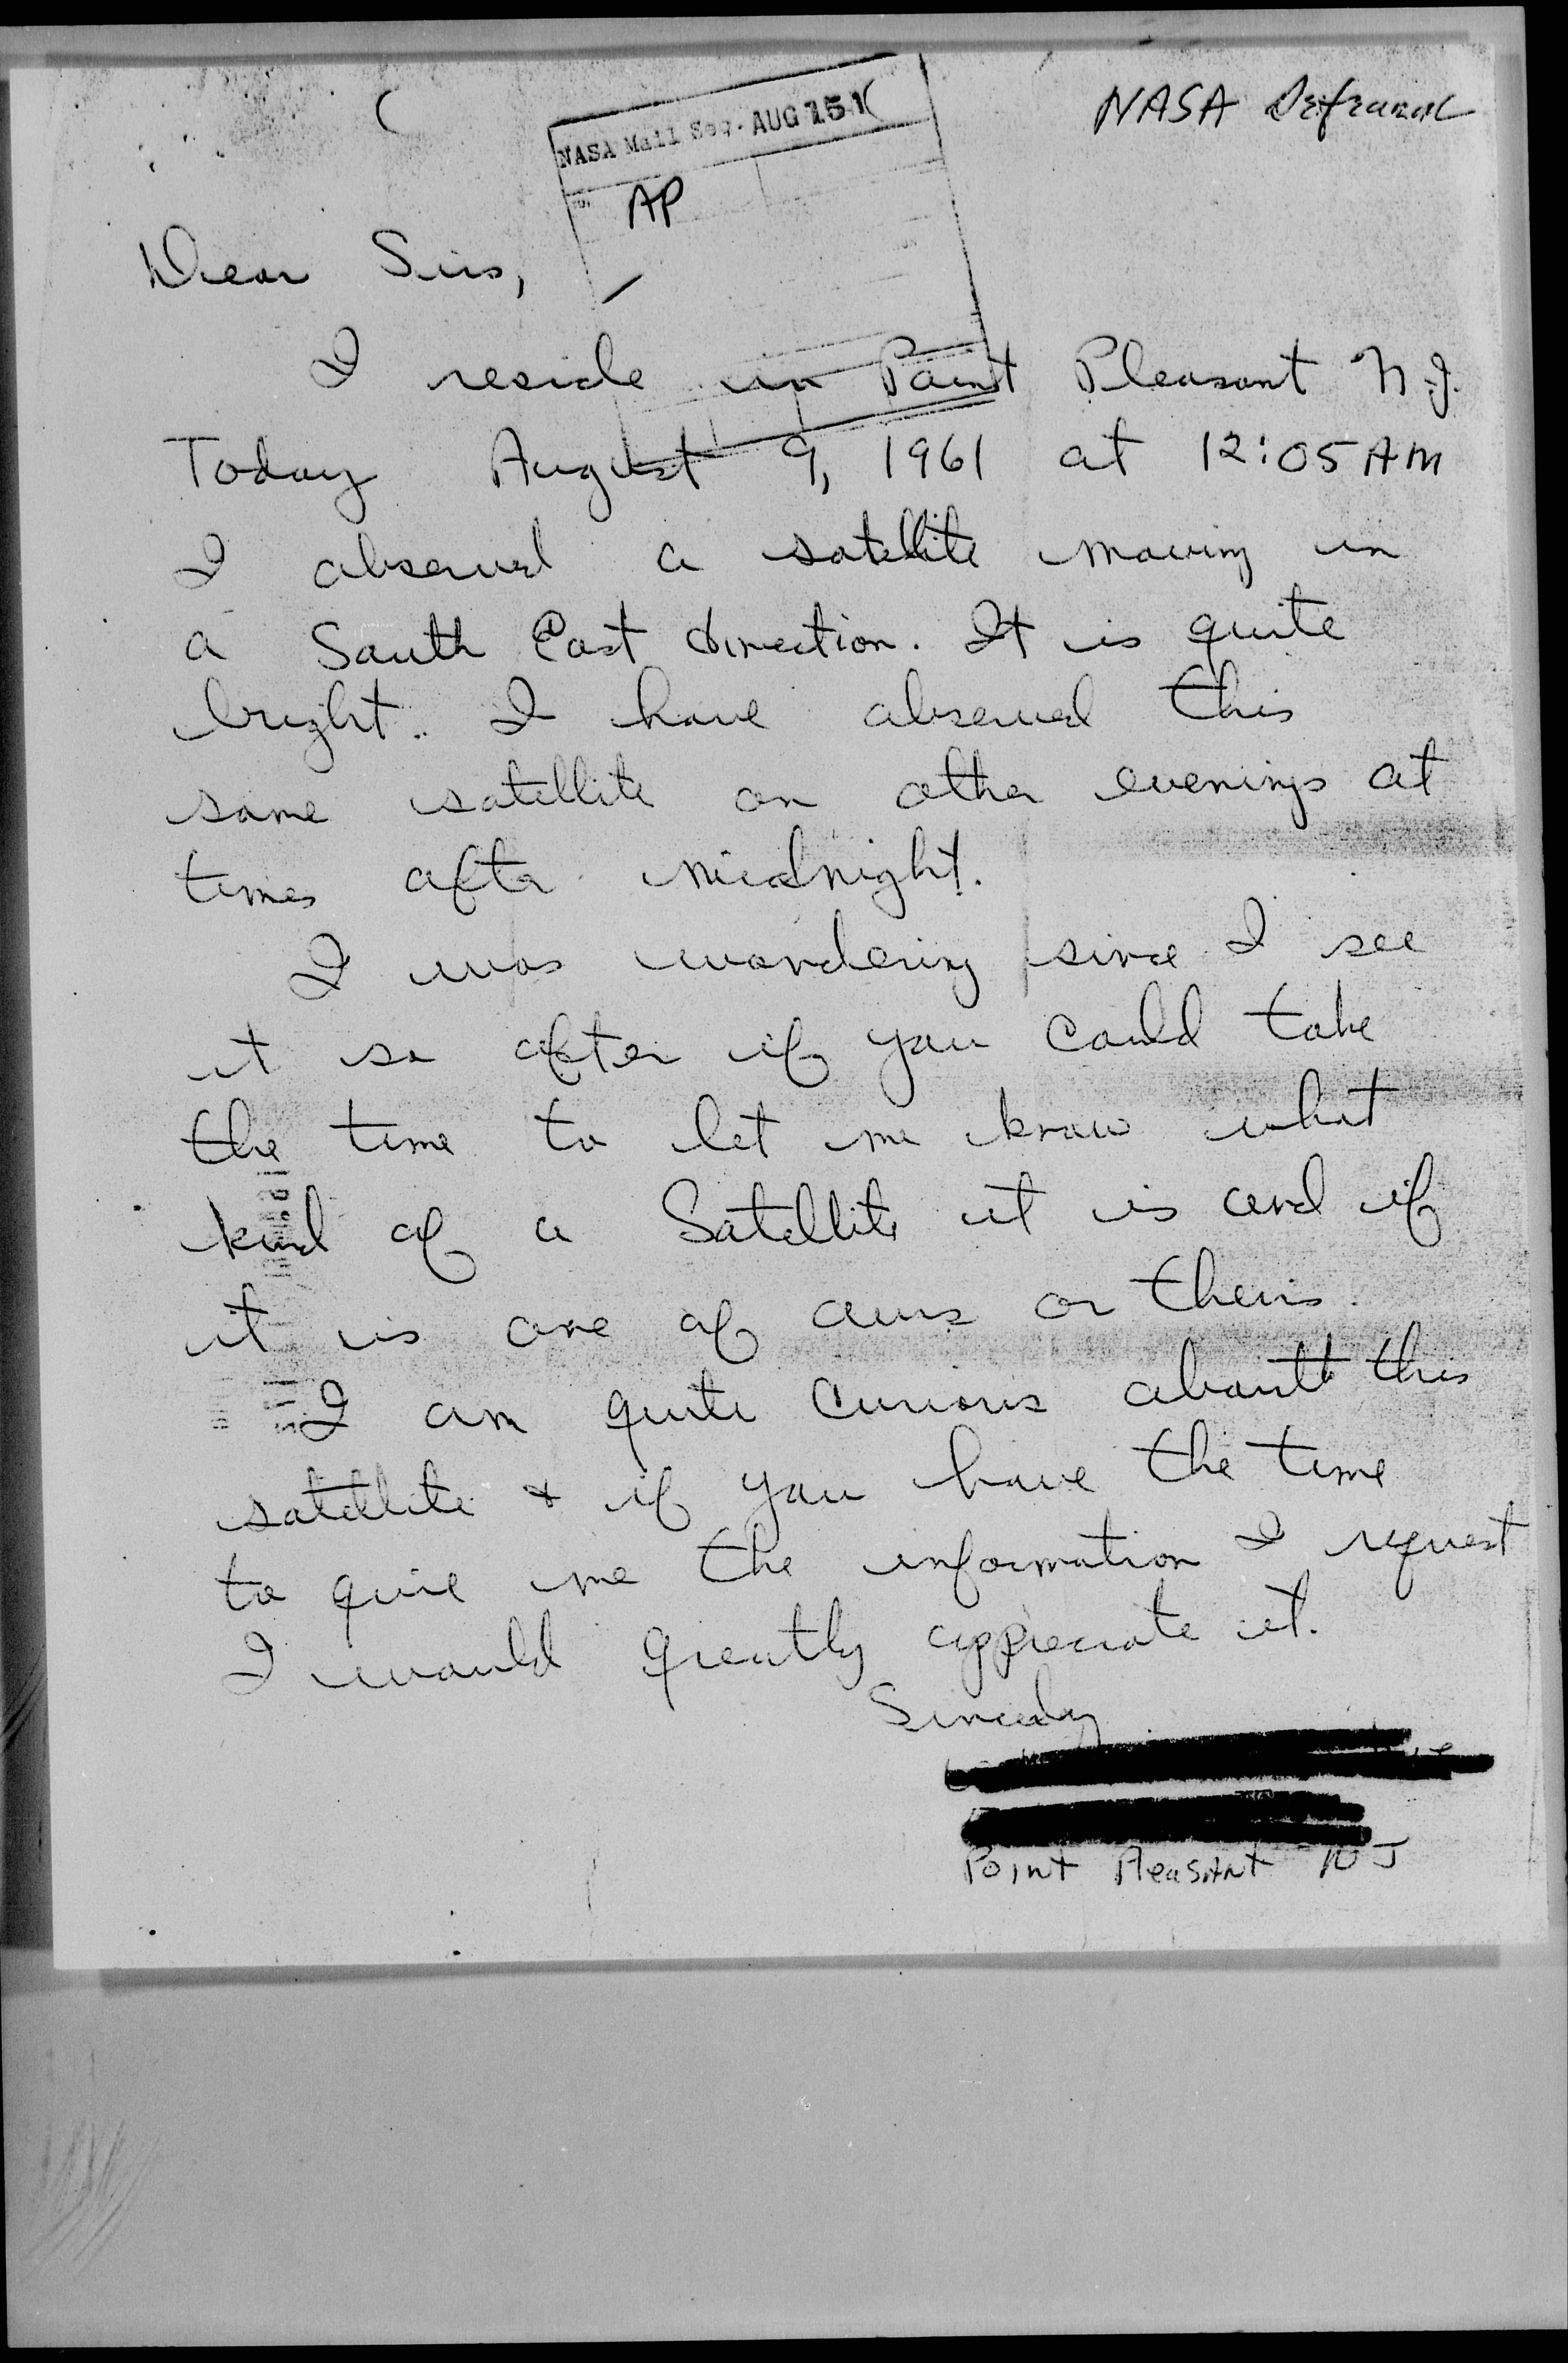 NASA Referral
NASA Mail Sec. AUG 15 1
AP
Dear Sirs,
I reside in Point Pleasant N.J.
Today August 9, 1961 at 12:05 AM
I observed a satellite moving in
a South East direction. It is quite
bright. I have observed this
same satellite on other evenings at
times after midnight.
I was wondering since I see
it so often if you could take
the time to let me know what
kind of a Satellite it is and if
it is one of ours or theirs.
I am quite curious about this
satellite & if you have the time
to give me the information I request
I would greatly appreciate it.
Sincerely
Point Pleasant NJ